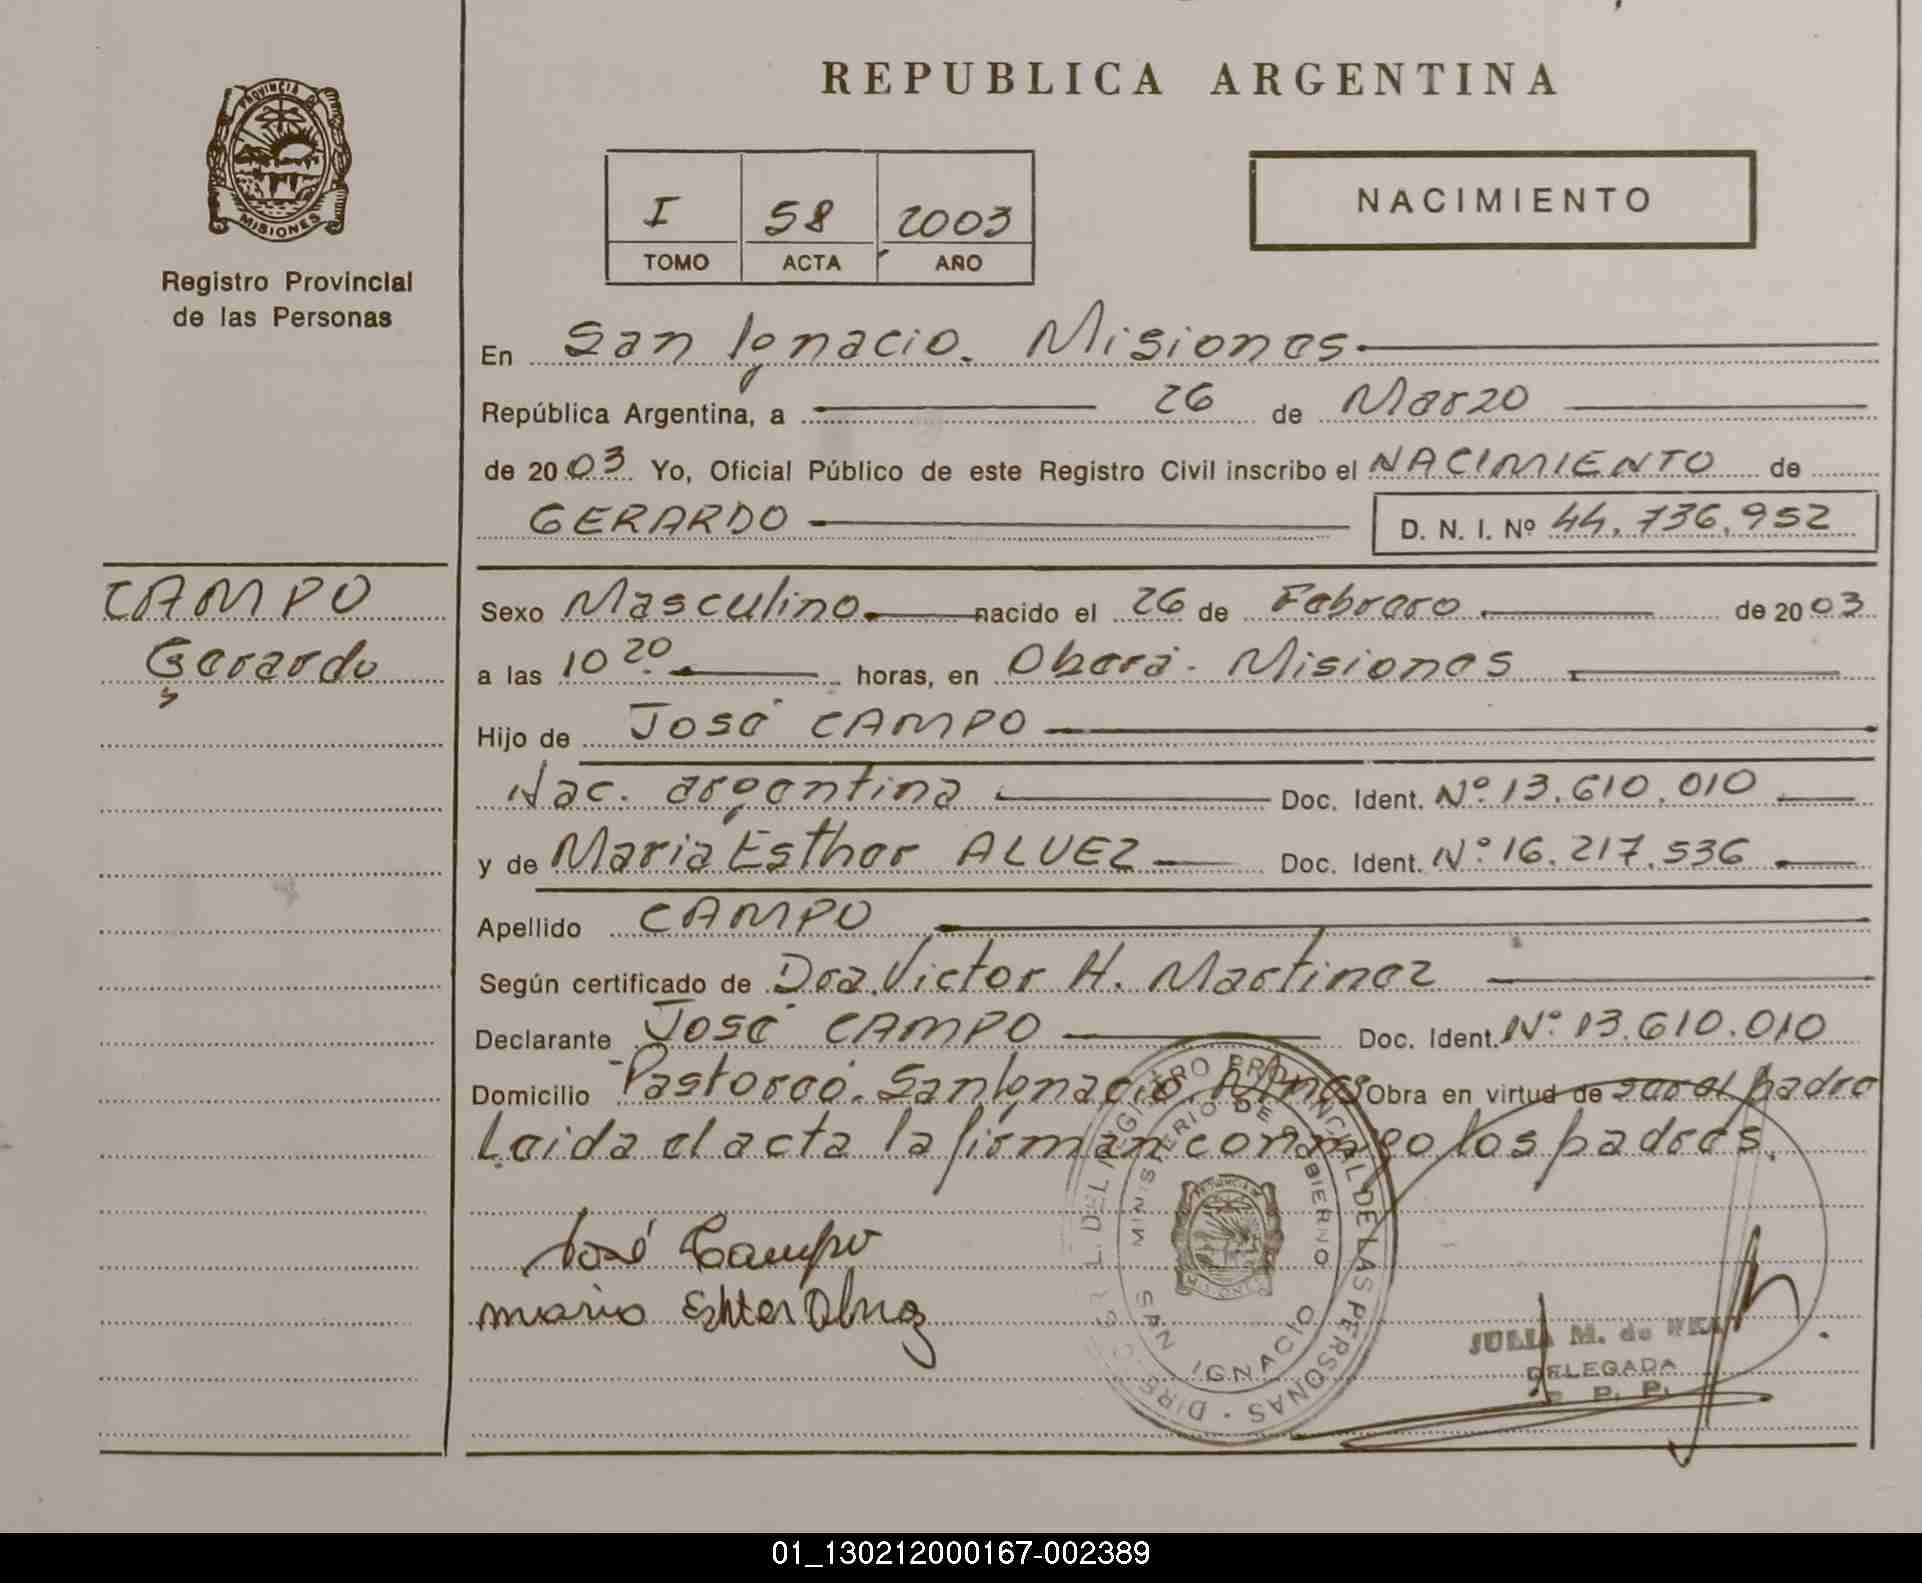 REPUBLICA ARGENTINA
PROVINCIA DE
MISIONES
Registro Provincial
de las Personas
I 58 2003
TOMO ACTA AÑO
NACIMIENTO
En San Ignacio. Misiones
República Argentina, a 26 de Marzo
de 2003 Yo, Oficial Público de este Registro Civil inscribo el NACIMIENTO de
GERARDO D. N. I. Nº 44.736.952
CAMPO
Gerardo
Sexo Masculino nacido el 26 de Febrero de 2003
a las 10 20 horas, en Oberá. Misiones
Hijo de José CAMPO
Nac. argentina Doc. Ident. Nº 13.610.010
y de Maria Esther ALVEZ Doc. Ident. Nº 16.217.536
Apellido CAMPO
Según certificado de Dra. Victor H. Martinez
Declarante José CAMPO Doc. Ident. Nº 13.610.010
Domicilio Pastoreo. San Ignacio. Mnes Obra en virtud de ser el padre
Leida el acta la firman conmigo los padres.
José Campo
maria Eshter Alvez
DIREC. GRAL. DEL REGISTRO PROVINCIAL DE LAS PERSONAS
MINISTERIO DE GOBIERNO
SAN IGNACIO
JULIA M. de
DELEGADA
R. P. P.
01_130212000167-002389